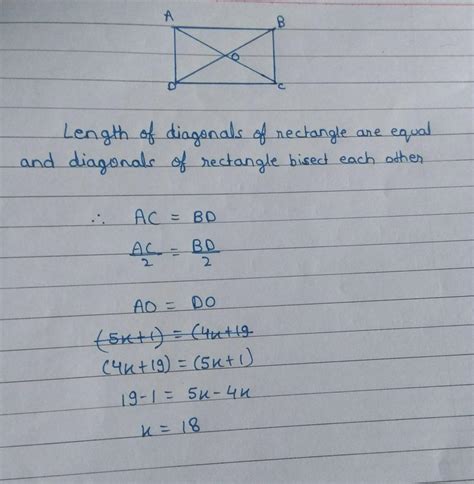 A B
O
D C
Length of diagonals of rectangle are equal
and diagonals of rectangle bisect each other
∴ AC = BD
AC/2 = BD/2
AO = DO
(5x+1) = (4x+19
(4x+19) = (5x+1)
19-1 = 5x-4x
x = 18